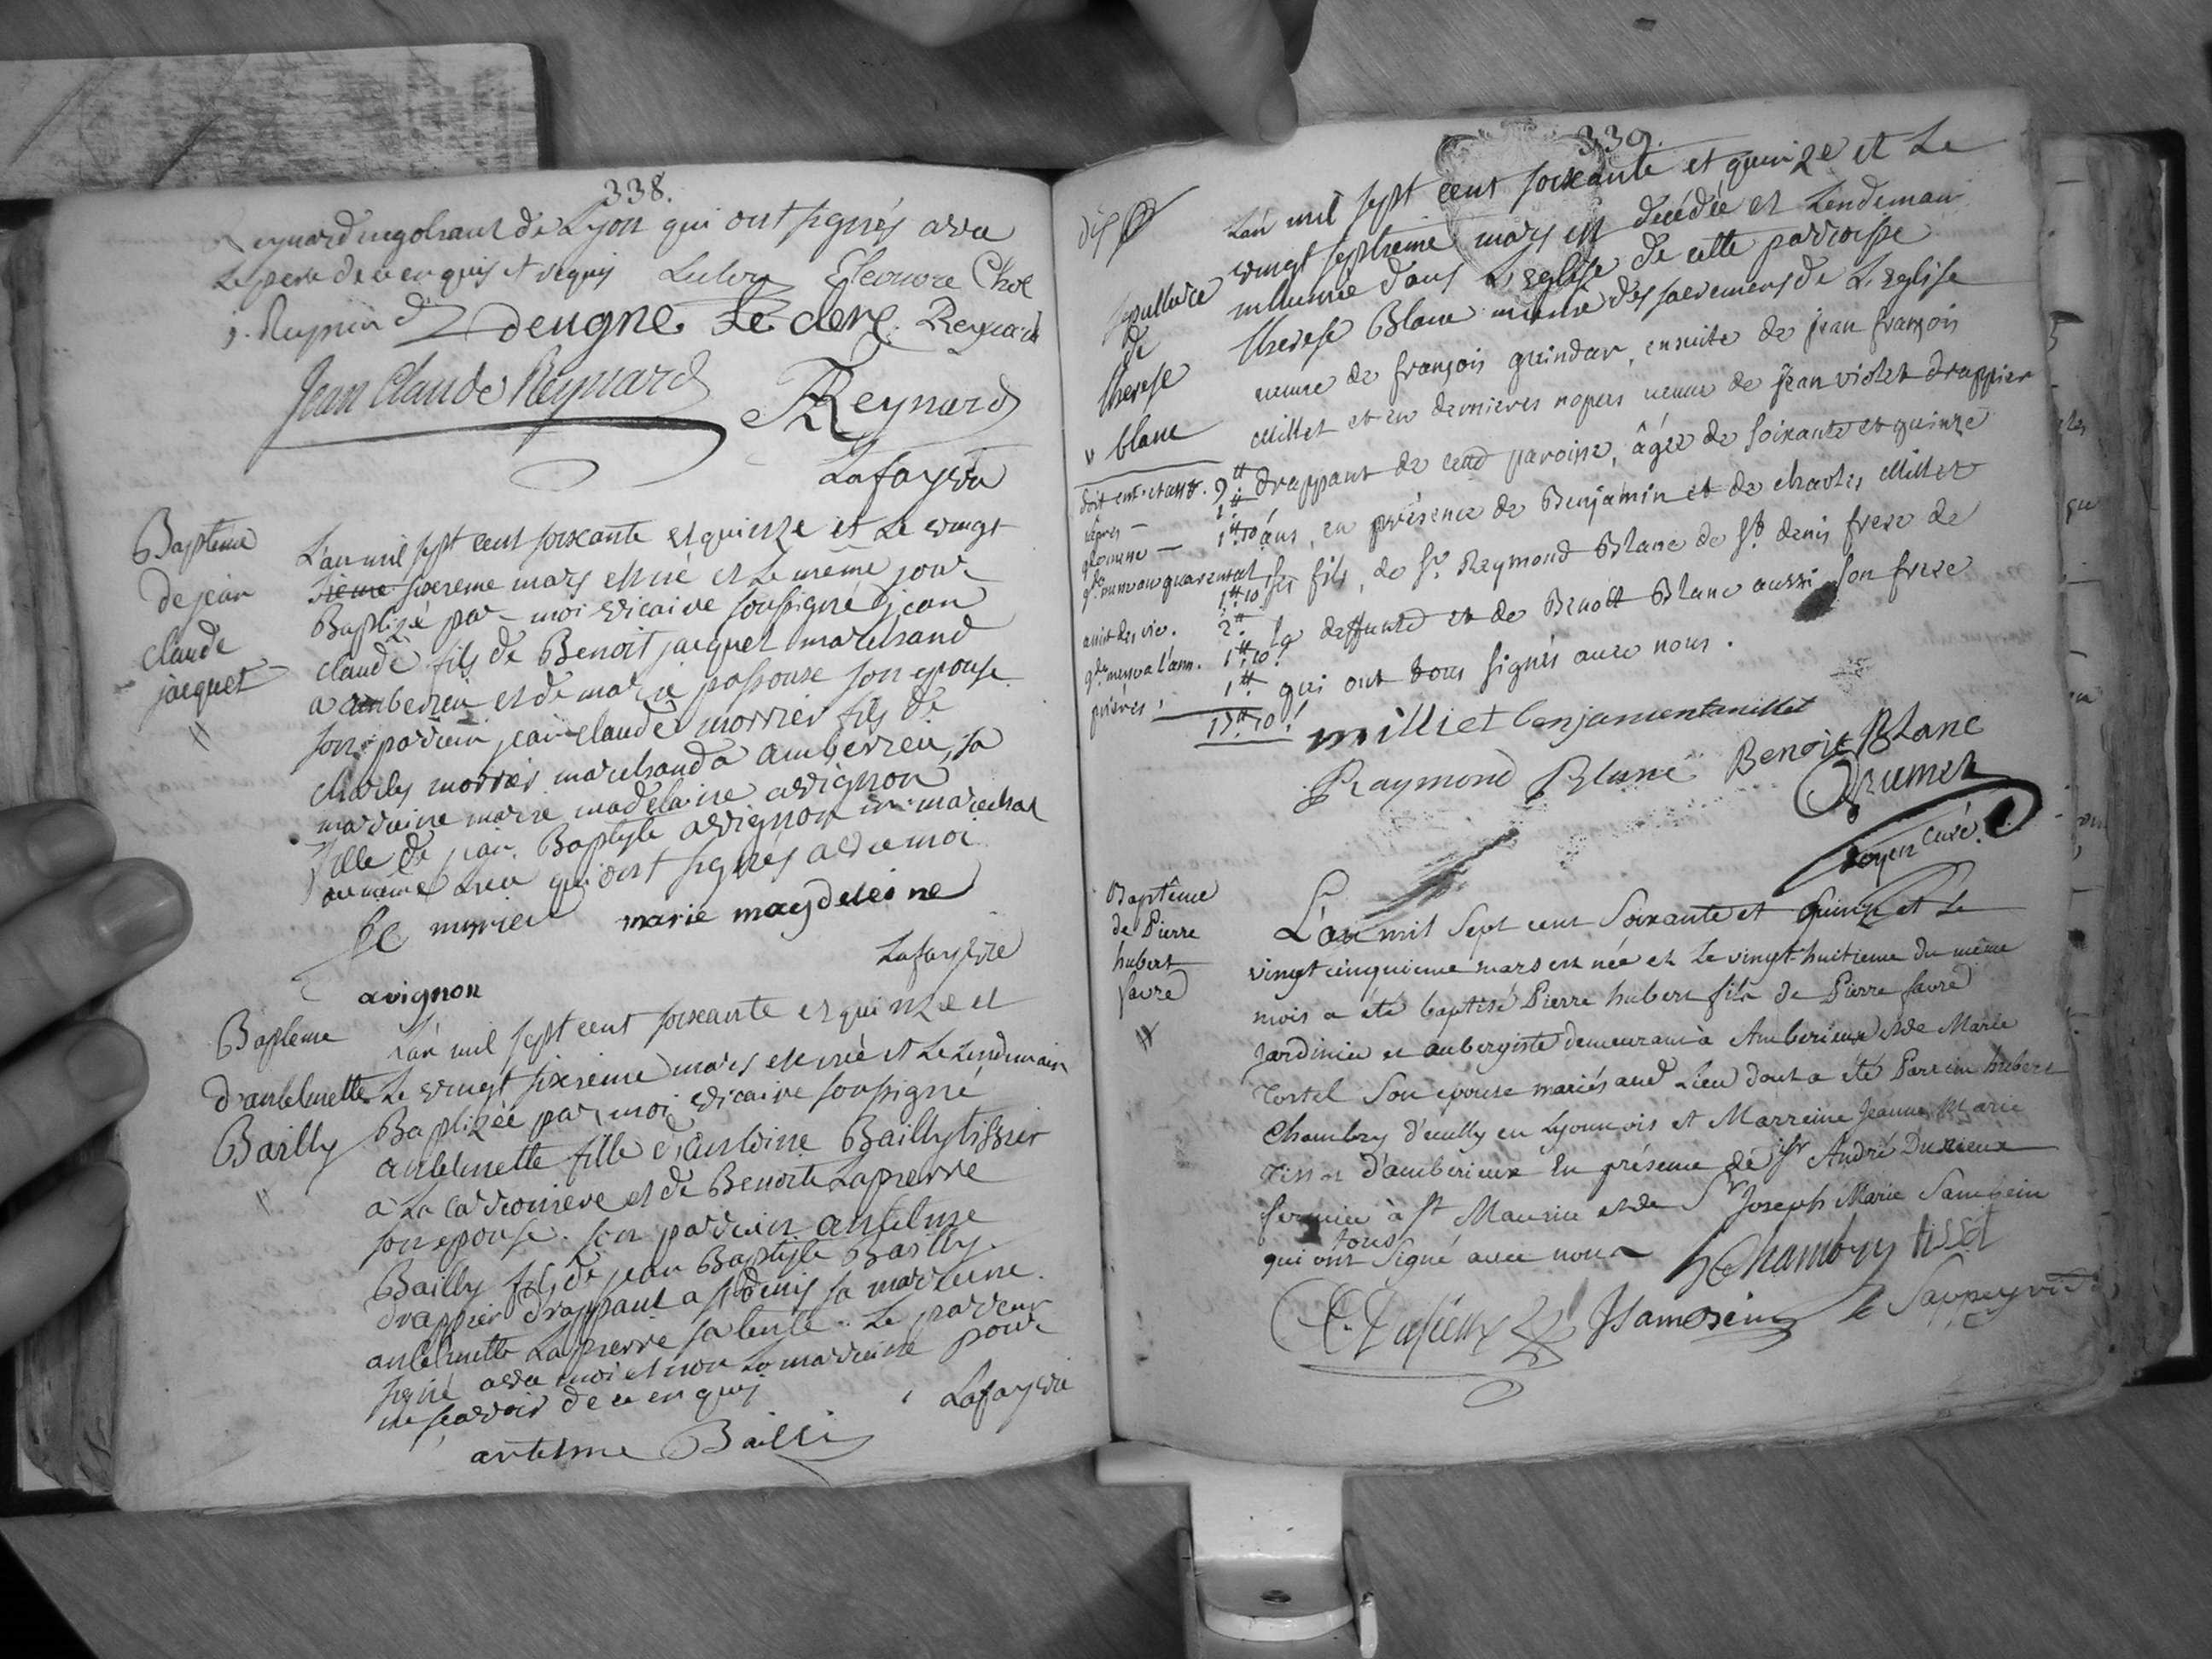 338.
Reynard negotiant de Lyon qui ont signés avec
Le pere de ce enquis et requis Eleonore Chol
deugne Le clerc Reynard
Jean Claude Reynard Reynard
Lafayette
Baptême
de jean
claude
jacquet
L'an mil sept cent soixante et quinze et Le vingt
sixieme mars est né et Le même jour
Baptizé par moi vicaire soussigné jean
claude fils de Benoit jacquet marchand
a amberieu et de marie son epouse
son parrain jean claude morrier fils de
charles morrier marchand a amberieu, sa
marraine marie madelaine avignon
fille de jean Baptiste avignon marechal
au même Lieu qui ont signés avec moi
marie magdeleine
Lafayette
avignon
Bapteme
d'anthelmette
Bailly
L'an mil sept cent soixante et quinze et
Le vingt sixieme mars est née et Le Lendemain
Baptizée par moi vicaire soussigné
anthelmette fille d'antoine Bailly tissier
a La et de Benoite Lapierre
son epouse. son parrain antelme
Bailly fils de jean Baptiste Bailly
drappier drappant a st denis sa marraine
anthelmette Lapierre sa tente. Le parrain
signé avec moi et non La marraine pour
ne sçavoir de ce enquis
Lafayette
antelme Bailli
339.
sepulture
de
therese
blanc
L'an mil sept cent soixante et quinze et Le
vingt septieme mars est decedée et Lendemain
inhumée dans L'Eglise de cette parroisse
therese Blanc munie des sacremens de L'Eglise
veuve de françois guindar, ensuite de jean françois
Millet et en dernieres nopces veuve de jean violet drappier
drappant de cette paroisse, âgée de soixante et quinze
ans, en présence de Benjamin et de charles Millet
ses fils, de Sr. Reymond Blanc de St. denis frere de
La deffunte et de Benoît Blanc aussi son frere
qui ont tous signés avec nous.
9.
1.
1. 10
1. 10
2.
1. 10
1.
prieres,
17. 10
milliet benjamen millet
Raymond Blanc Benoit Blanc
curé
Baptême
de Pierre
hubert
favre
L'an mil Sept cent Soixante et Quinze et Le
vingt cinquieme mars est née et Le vingt huitieme du même
mois a été baptisé Pierre hubert fils de Pierre favre
Jardinier et aubergiste demeurant à Amberieux et de Marie
Tortel Son epouse mariés aud Lieu dont a été Parrein hubert
Chambry d'ecully en Lyonnois et Marreine Jeanne Marie
Tissot d'amberieux En présence de Sr André Durieux
fermier à St Maurice et de Sr Joseph Marie
tous
qui ont Signé avec nous Chambry tissot